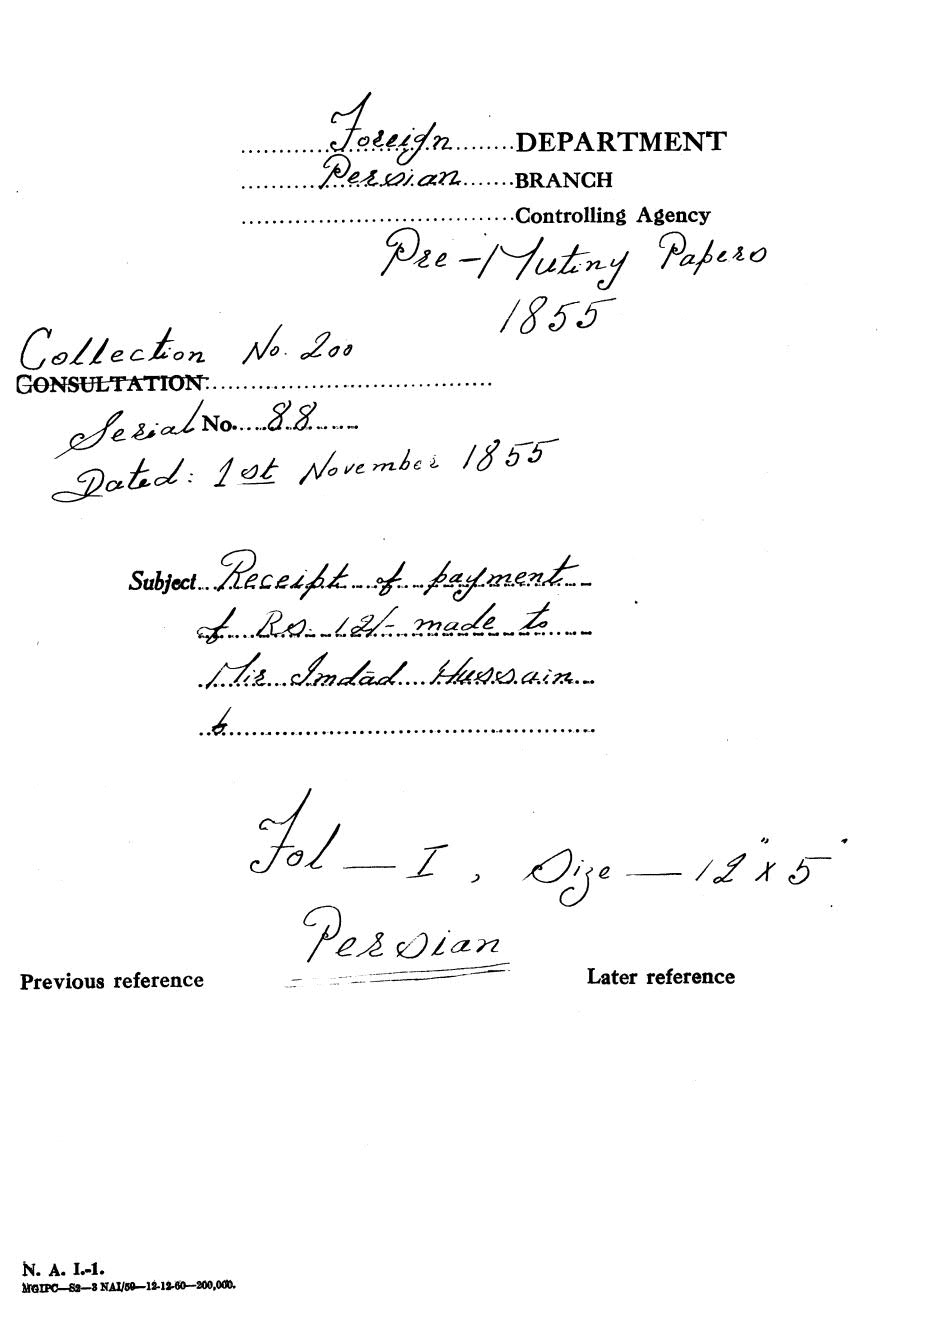 Foreign DEPARTMENT
Persian BRANCH
Controlling Agency
Pre-Mutiny Papers
1855
Collection No. 200
CONSULTATION
Serial No. 88
Dated: 1st November 1855
Subject Receipt of payment
of Rs. 12/- made to
Mir Imdād Hussain
Fol — I, Size — 12" x 5"
Persian
Previous reference Later reference
N. A. I.-1.
MGIPC—S2—3 NAI/59—12-12-60—200,000.